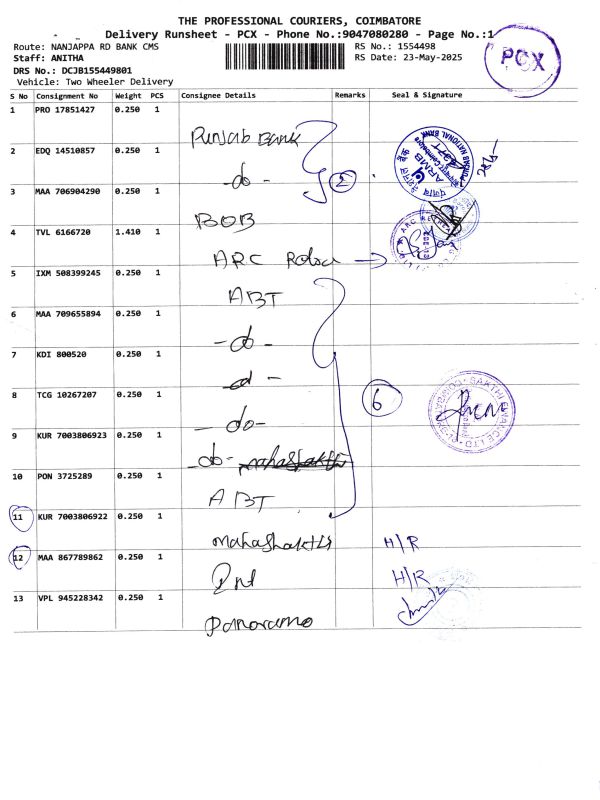 THE PROFESSIONAL COURIERS, COIMBATORE
Delivery Runsheet - PCX - Phone No.:9047080280 - Page No.:1
Route: NANJAPPA RD BANK CMS
RS No.: 1554498
Staff: ANITHA
RS Date: 23-May-2025
DRS No.: DCJB155449801
Vehicle: Two Wheeler Delivery
PCX
S No Consignment No Weight PCS Consignee Details Remarks Seal & Signature
1 PRO 17851427 0.250 1
Punjab Bank
2 EDQ 14510857 0.250 1
-do-
2
3 MAA 706904290 0.250 1
BOB
4 TVL 6166720 1.410 1
ARC
5 IXM 508399245 0.250 1
ABT
6 MAA 709655894 0.250 1
-do-
7 KDI 800520 0.250 1
-do-
8 TCG 10267207 0.250 1
-do-
6
9 KUR 7003806923 0.250 1
-do-
10 PON 3725289 0.250 1
ABT
11 KUR 7003806922 0.250 1
mahashakti H/R
12 MAA 867789862 0.250 1
H/R
13 VPL 945228342 0.250 1
panoramo
PUNJAB NATIONAL BANK
ARMB
SAKTHI FINANCE LTD